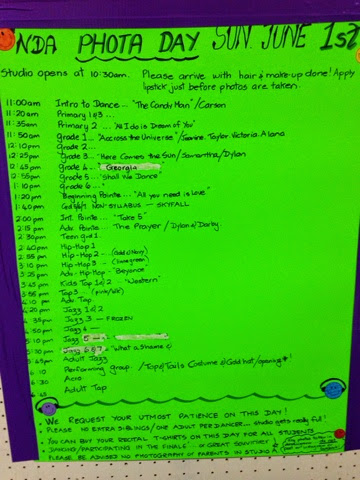 NDA PHOTA DAY SUN. JUNE 1st
Studio opens at 10:30am. Please arrive with hair & make-up done! Apply
lipstick just before photos are taken.
11:00am Intro to Dance... "The Candy Man" / Carson
11:20am Primary 1
11:35am Primary 2 ... "All I do is Dream of You"
11:50am Grade 1... "Accross the Universe" / Taylor Victoria Alana
12:10pm Grade 2...
12:25pm Grade 3... "Here Comes the Sun / Samantha / Dylan
12:45pm Grade 4... "Georgia
12:55pm Grade 5... "Shall We Dance"
1:10pm Grade 6...
1:20pm Beginning Pointe... "All you need is love"
1:40pm NON-SYLLABUS — SKYFALL
2:00pm Int. Pointe... "Take 5"
2:15pm Adv. Pointe... The Prayer / Dylan & Darby
2:30pm Teen
2:40pm Hip-Hop 1
2:55pm Hip-Hop 2 -
3:10pm Hip-Hop 3 - (lime green)
3:25pm Adv. Hip-Hop - "Beyonce
3:45pm Kids Tap 1&2 - "Western"
3:55pm Tap 3 -
4:10pm Adv. Tap
4:20pm Jazz 1&2
4:35pm Jazz 3 — FROZEN
pm Jazz 4 —
5:10pm Jazz 5
5:30pm Jazz 6&7 - "What a Shame
5:45pm Adult Jazz
6:10 Performing group. / Top & Tails Costume & Gold hat / opening #!
6:30 Acro
6:45 Adult Tap
WE REQUEST YOUR UTMOST PATIENCE ON THIS DAY!
PLEASE NO EXTRA SIBLINGS / ONE ADULT PER DANCER... studio gets really full!
YOU CAN BUY YOUR RECITAL T-SHIRTS ON THIS DAY FOR ALL STUDENTS
DANCING / PARTICIPATING IN THE FINALE
PLEASE BE ADVISED NO PHOTOGRAPHY BY PARENTS IN STUDIO A